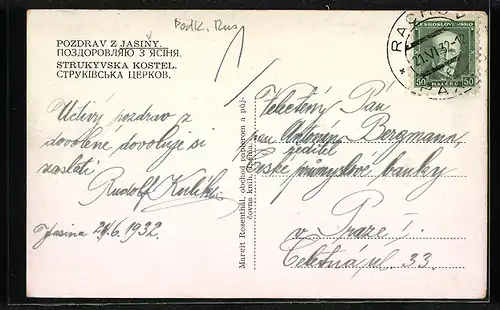 Podk. Rus
POZDRAV Z JASIŇY.
ПОЗДОРОВЛЯЮ З ЯСІНЯ.
STRUKYVSKA KOSTEL.
СТРУКІВСЬКА ЦЕРКОВ.
ČESKOSLOVENSKO
50 HALÉŘŮ 50
21.VI.32
Uctivý pozdrav z
dovolené dovoluje si
zaslati
Rudolf
Jasina 21/6.1932.
Markét Rosenthal, obchod s papírem a půj-
čovna knih, Jasiňa.
Velectěný Pán
pan Antonín Bergmann,
ředitel
České průmyslové banky
v Praze I.
Celetná ul. 33.